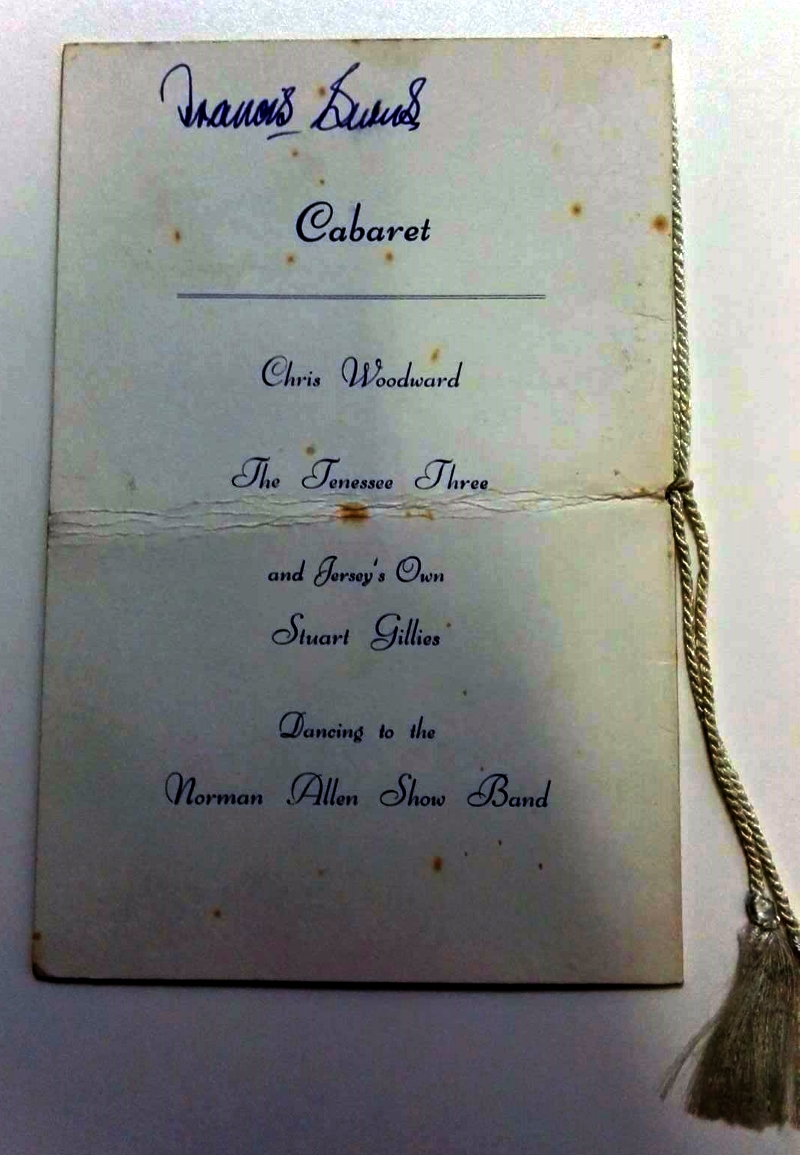 Francis Burns
Cabaret
Chris Woodward
The Tenessee Three
and Jersey's Own
Stuart Gillies
Dancing to the
Norman Allen Show Band